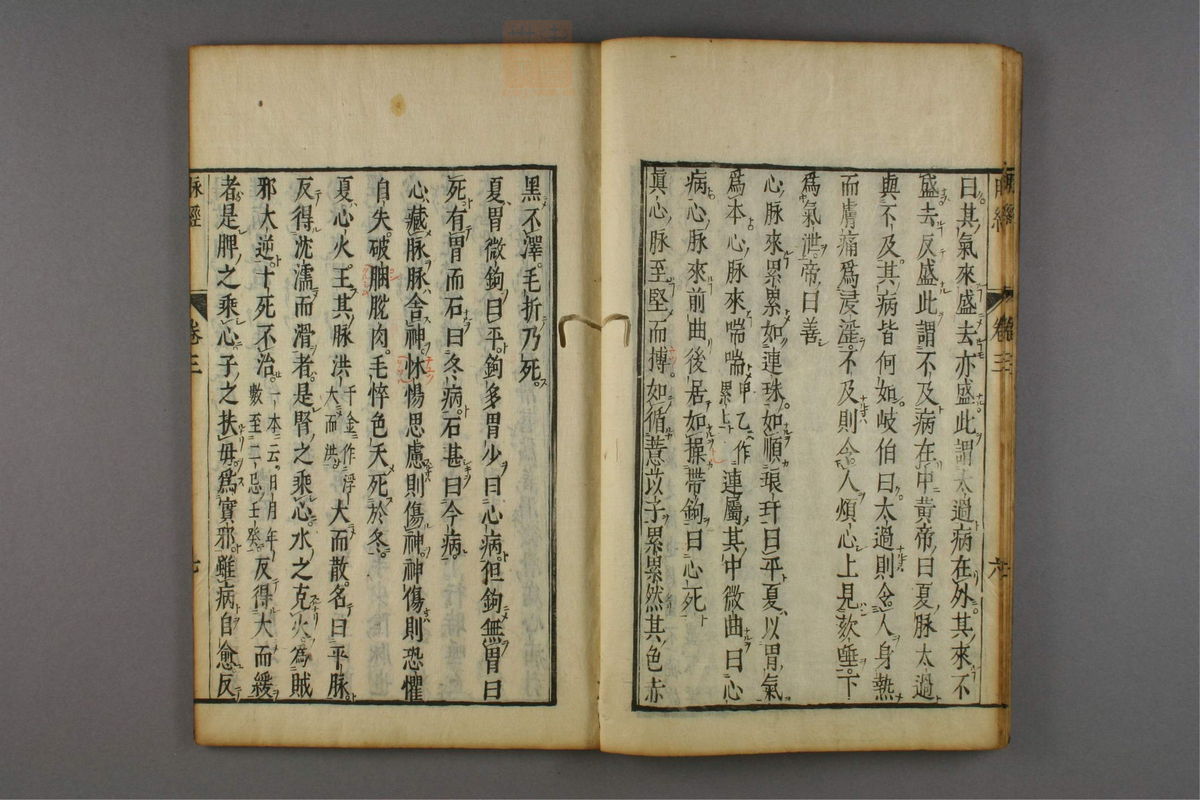 曰其氣來盛去亦盛此謂太過病在外其來不
盛去反盛此謂不及病在中黃帝曰夏脉太過
與不及其病皆何如岐伯曰太過則令人身熱
而膚痛爲浸淫不及則令人煩心上見欬唾下
爲氣泄帝曰善
心脉來累累如連珠如循琅玕曰平夏以胃氣
爲本心脉來喘喘甲乙作累上連屬其中微曲曰心
病心脉來前曲後居如操帶鉤曰心死
眞心脉至堅而搏如循薏苡子累累然其色赤
黑不澤毛折乃死
夏胃微鉤曰平鉤多胃少曰心病但鉤無胃曰
死胃而有石曰冬病石甚曰今病
心藏脉脉舍神怵惕思慮則傷神神傷則恐懼
自失破䐃脫肉毛悴色夭死於冬
夏心火王其脉洪千金作浮大而洪大而散名曰平脉
反得沈濡而滑者是腎之乘心水之克火爲賊
邪大逆十死不治一本云日月年數至二忌壬癸反得大而緩
者是脾之乘心子之扶母爲實邪雖病自愈反
脉經
卷三
六
脉經
卷三
七